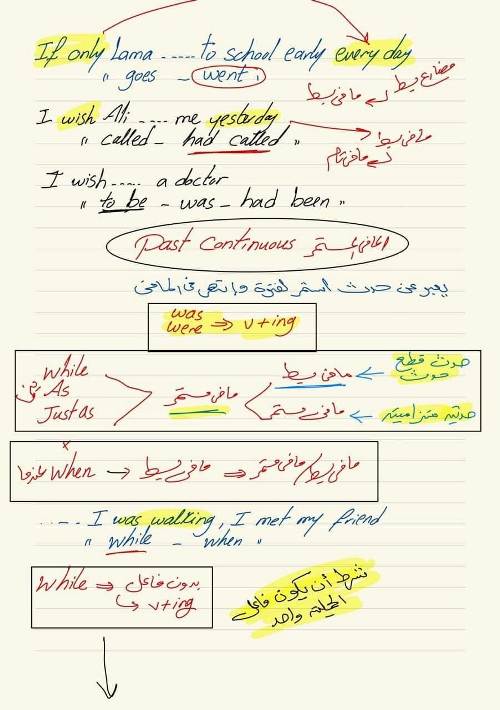 If only Lama ..... to school early every day
" goes - went "
مضارع بسيط
ماضي بسيط
I wish Ali .... me yesterday
" called - had called "
ماضي بسيط
ماضي تام
I wish ..... a doctor
" to be - was - had been "
Past Continuous الماضي المستمر
يعبر عن حدث استمر لفترة وانتهى في الماضي
was
were ⇒ v+ing
while
As
Just as
ماضي مستمر
ماضي بسيط ← حدث قطع حدث
ماضي مستمر ← حدثين متزامنين
x
عندما When → ماضي بسيط ⇒ ماضي بسيط/ماضي مستمر
..... I was walking, I met my friend
" while - when "
While ⇒ بدون فاعل
↳ v+ing
شرط أن يكون فاعل
الجملة واحد